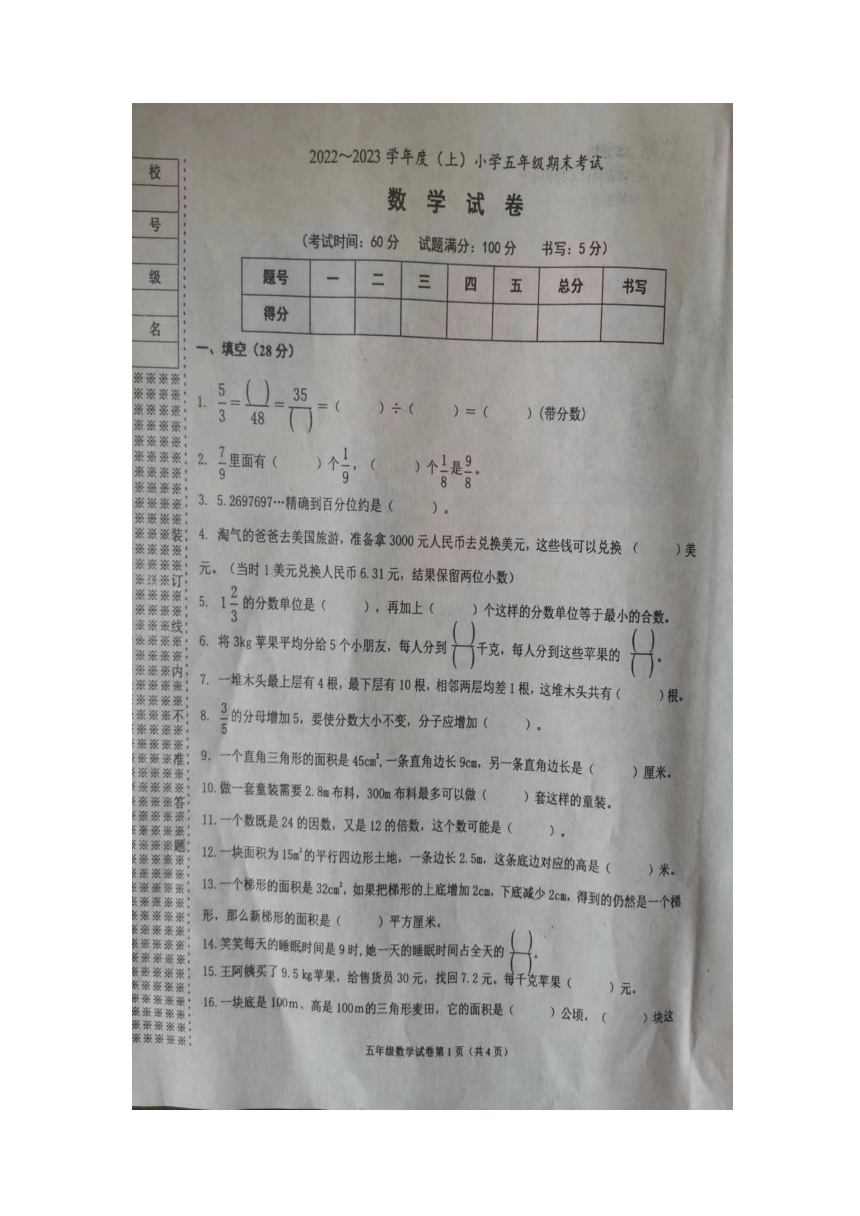 2022~2023 学年度（上）小学五年级期末考试
数 学 试 卷
（考试时间：60 分 试题满分：100 分 书写：5 分）
题号 一 二 三 四 五 总分 书写
得分
一、填空（28 分）
1. 5/3 = ( )/48 = 35/( ) =（ ）÷（ ）=（ ）(带分数)
2. 7/9 里面有（ ）个 1/9，（ ）个 1/8 是 9/8。
3. 5.2697697…精确到百分位约是（ ）。
4. 淘气的爸爸去美国旅游，准备拿 3000 元人民币去兑换美元，这些钱可以兑换（ ）美
元。（当时 1 美元兑换人民币 6.31 元，结果保留两位小数）
5. 1 2/3 的分数单位是（ ），再加上（ ）个这样的分数单位等于最小的合数。
6. 将 3kg 苹果平均分给 5 个小朋友，每人分到 ( )/( ) 千克，每人分到这些苹果的 ( )/( )。
7. 一堆木头最上层有 4 根，最下层有 10 根，相邻两层均差 1 根，这堆木头共有（ ）根。
8. 3/5 的分母增加 5，要使分数大小不变，分子应增加（ ）。
9. 一个直角三角形的面积是 45cm²，一条直角边长 9cm，另一条直角边长是（ ）厘米。
10. 做一套童装需要 2.8m 布料，300m 布料最多可以做（ ）套这样的童装。
11. 一个数既是 24 的因数，又是 12 的倍数，这个数可能是（ ）。
12. 一块面积为 15m²的平行四边形土地，一条边长 2.5m，这条底边对应的高是（ ）米。
13. 一个梯形的面积是 32cm²，如果把梯形的上底增加 2cm，下底减少 2cm，得到的仍然是一个梯
形，那么新梯形的面积是（ ）平方厘米。
14. 笑笑每天的睡眠时间是 9 时，她一天的睡眠时间占全天的 ( )/( )。
15. 王阿姨买了 9.5 kg苹果，给售货员 30 元，找回 7.2 元。每千克苹果（ ）元。
16. 一块底是 100m、高是 100m的三角形麦田，它的面积是（ ）公顷，（ ）块这
五年级数学试卷第 1 页（共 4 页）
校
号
级
名
装
订
线
内
不
准
答
题